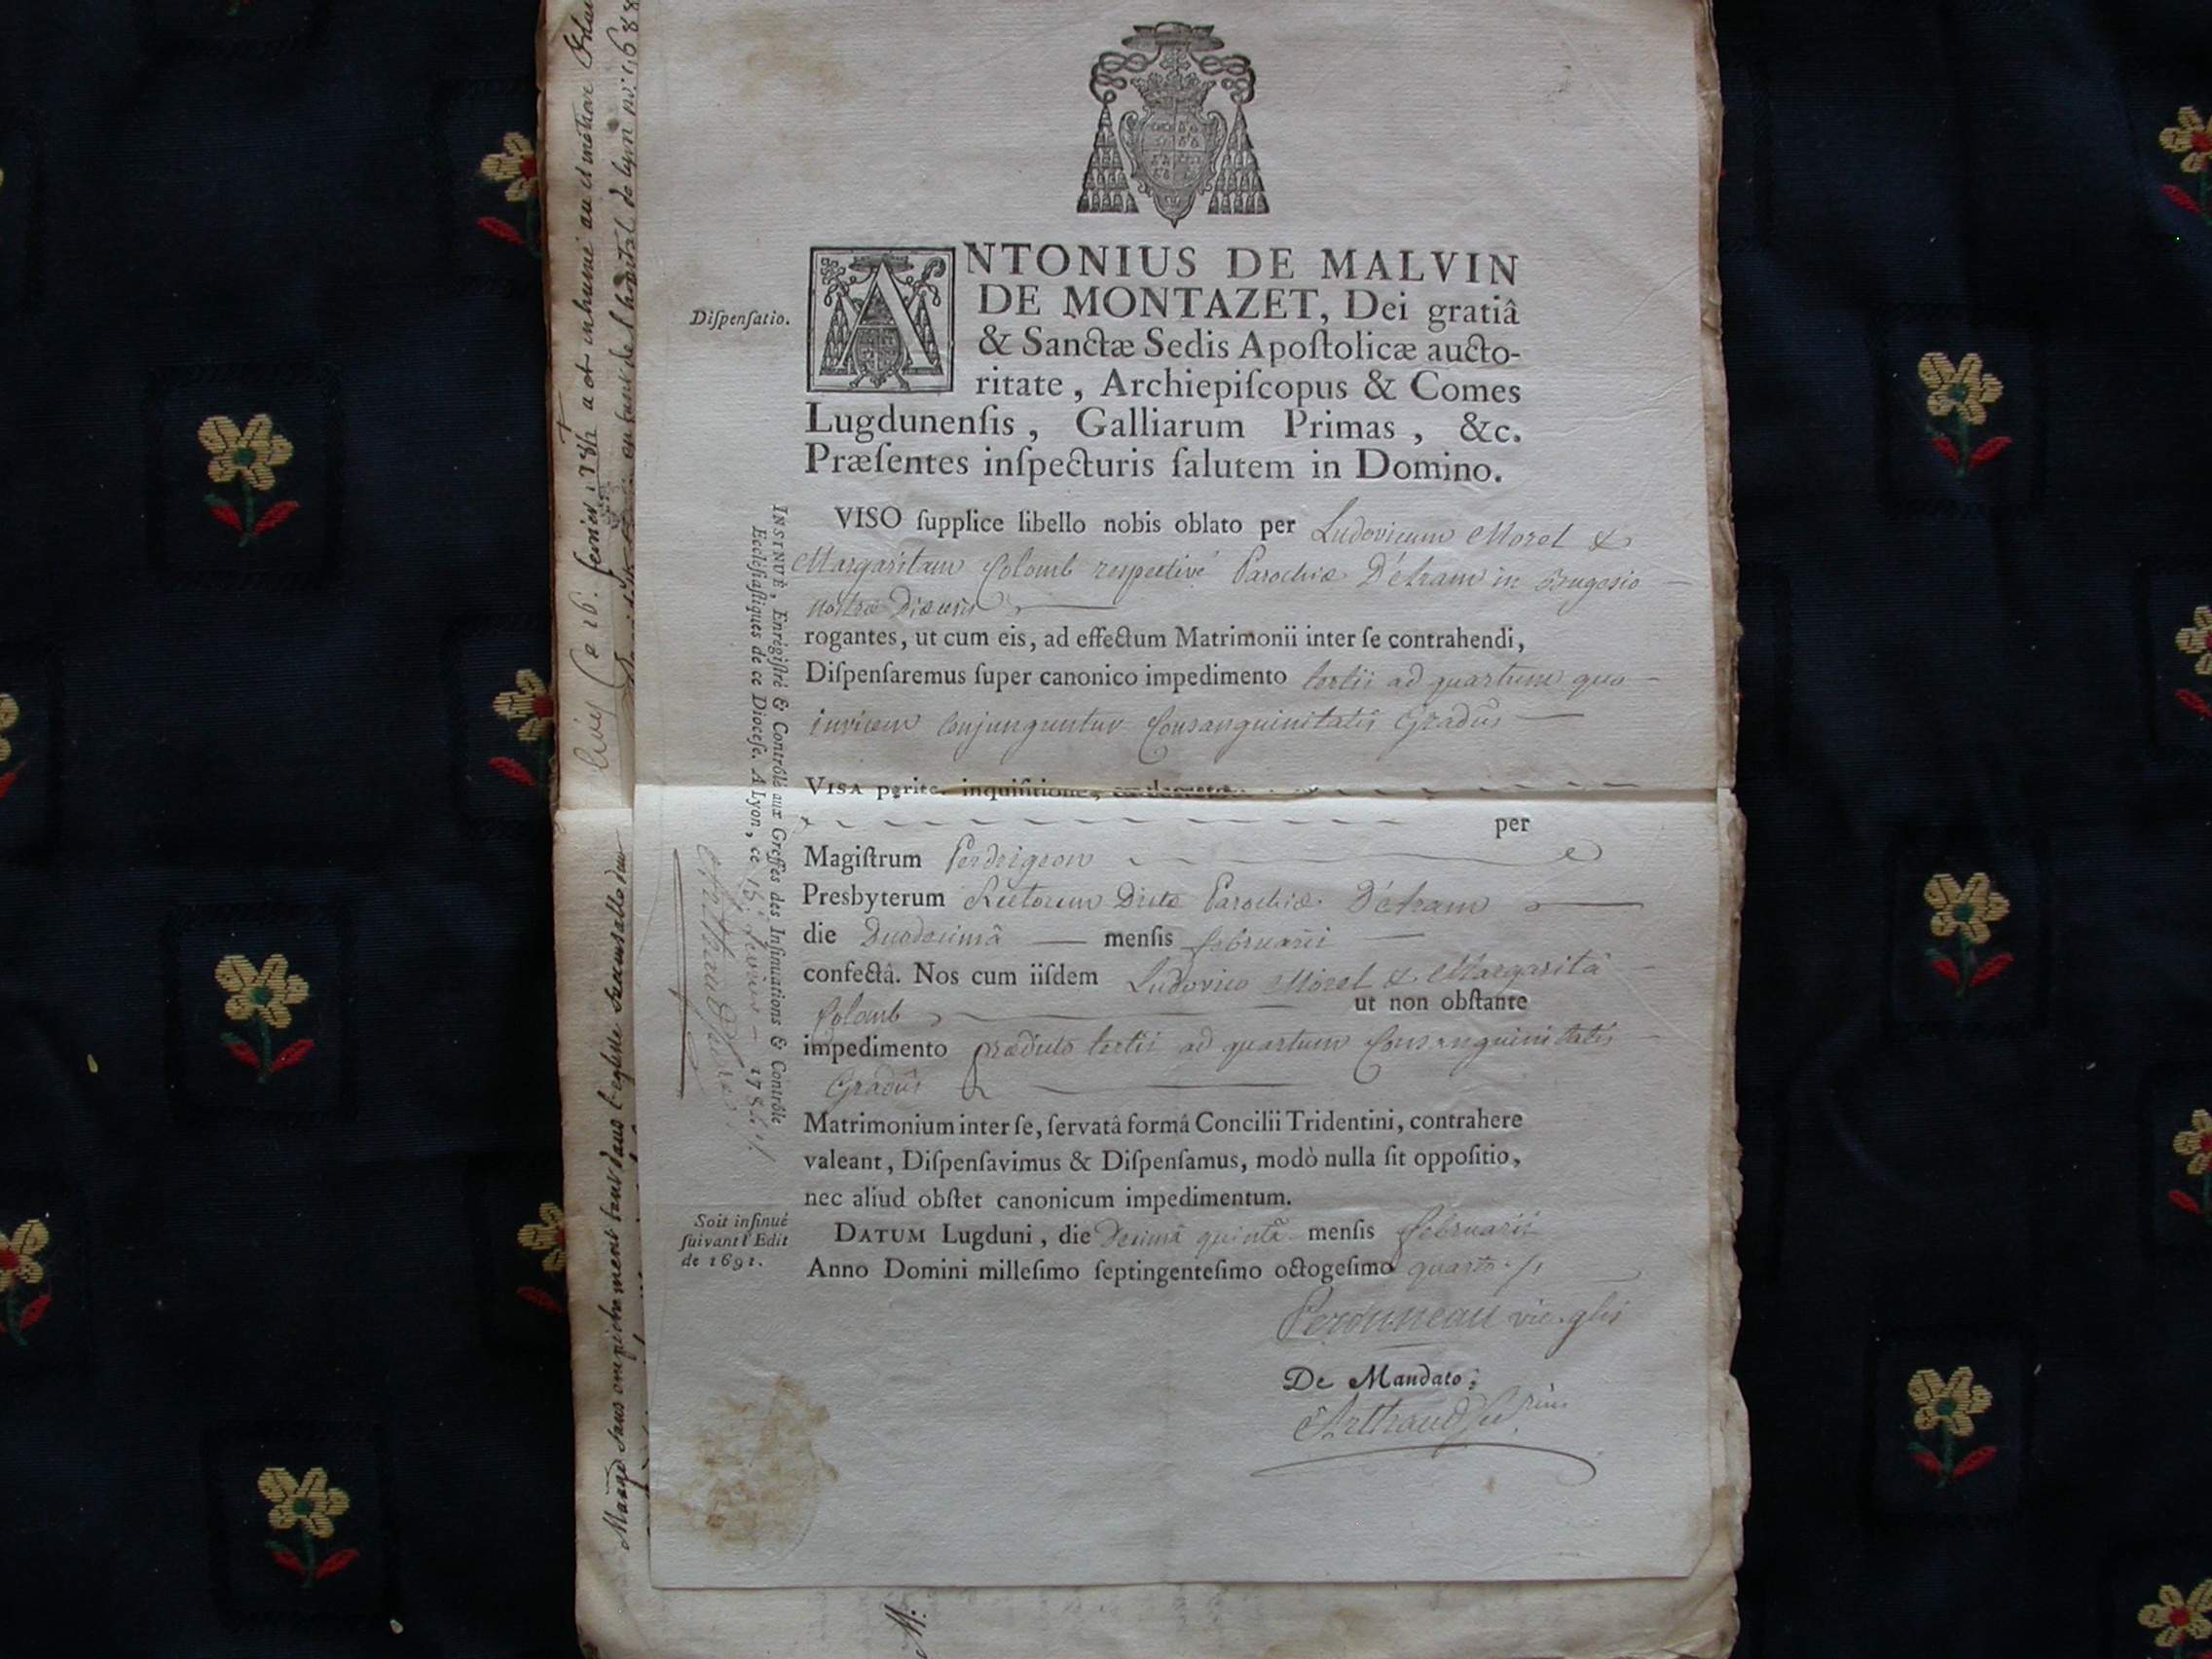 Dispensatio.
ANTONIUS DE MALVIN
DE MONTAZET, Dei gratiâ
& Sanctæ Sedis Apostolicæ aucto-
ritate, Archiepiscopus & Comes
Lugdunensis, Galliarum Primas, &c.
Præsentes inspecturis salutem in Domino.
VISO supplice libello nobis oblato per Ludovicum Morel &
Margaritam Colomb respectivé Parochiæ D'étram in Beugesio
nostræ Diæcesis
rogantes, ut cum eis, ad effectum Matrimonii inter se contrahendi,
Dispensaremus super canonico impedimento tertii ad quartum quo
invicem Conjunguntur Consanguinitatis Gradûs
VISA inquisitione,
per
Magistrum Perdrigeon
Presbyterum Rectorem Dictæ Parochiæ D'étram
die Duodecimâ mensis februarii
confectâ. Nos cum iisdem Ludovico Morel & Margaritâ
Colomb ut non obstante
impedimento prædicto tertii ad quartum Consanguinitatis
Gradûs
Matrimonium inter se, servatâ formâ Concilii Tridentini, contrahere
valeant, Dispensavimus & Dispensamus, modò nulla sit oppositio,
nec aliud obstet canonicum impedimentum.
DATUM Lugduni, die Decimâ quintâ mensis februarii
Anno Domini millesimo septingentesimo octogesimo quarto
Perouneau vic. glis
De Mandato;
Arthaud
Soit insinué
suivant l'Edit
de 1691.
INSINUÉ, Enrégistré & Contrôlé aux Greffes des Insinuations & Contrôle
Ecclésiastiques de ce Diocese. A Lyon, ce 15 fevrier 1784
Arthaud
ce 16. fevrier 1784 a et inhumé au cimetiere
de l'hopital de lyon
Mariage sans empechement dans l'eglise
M: